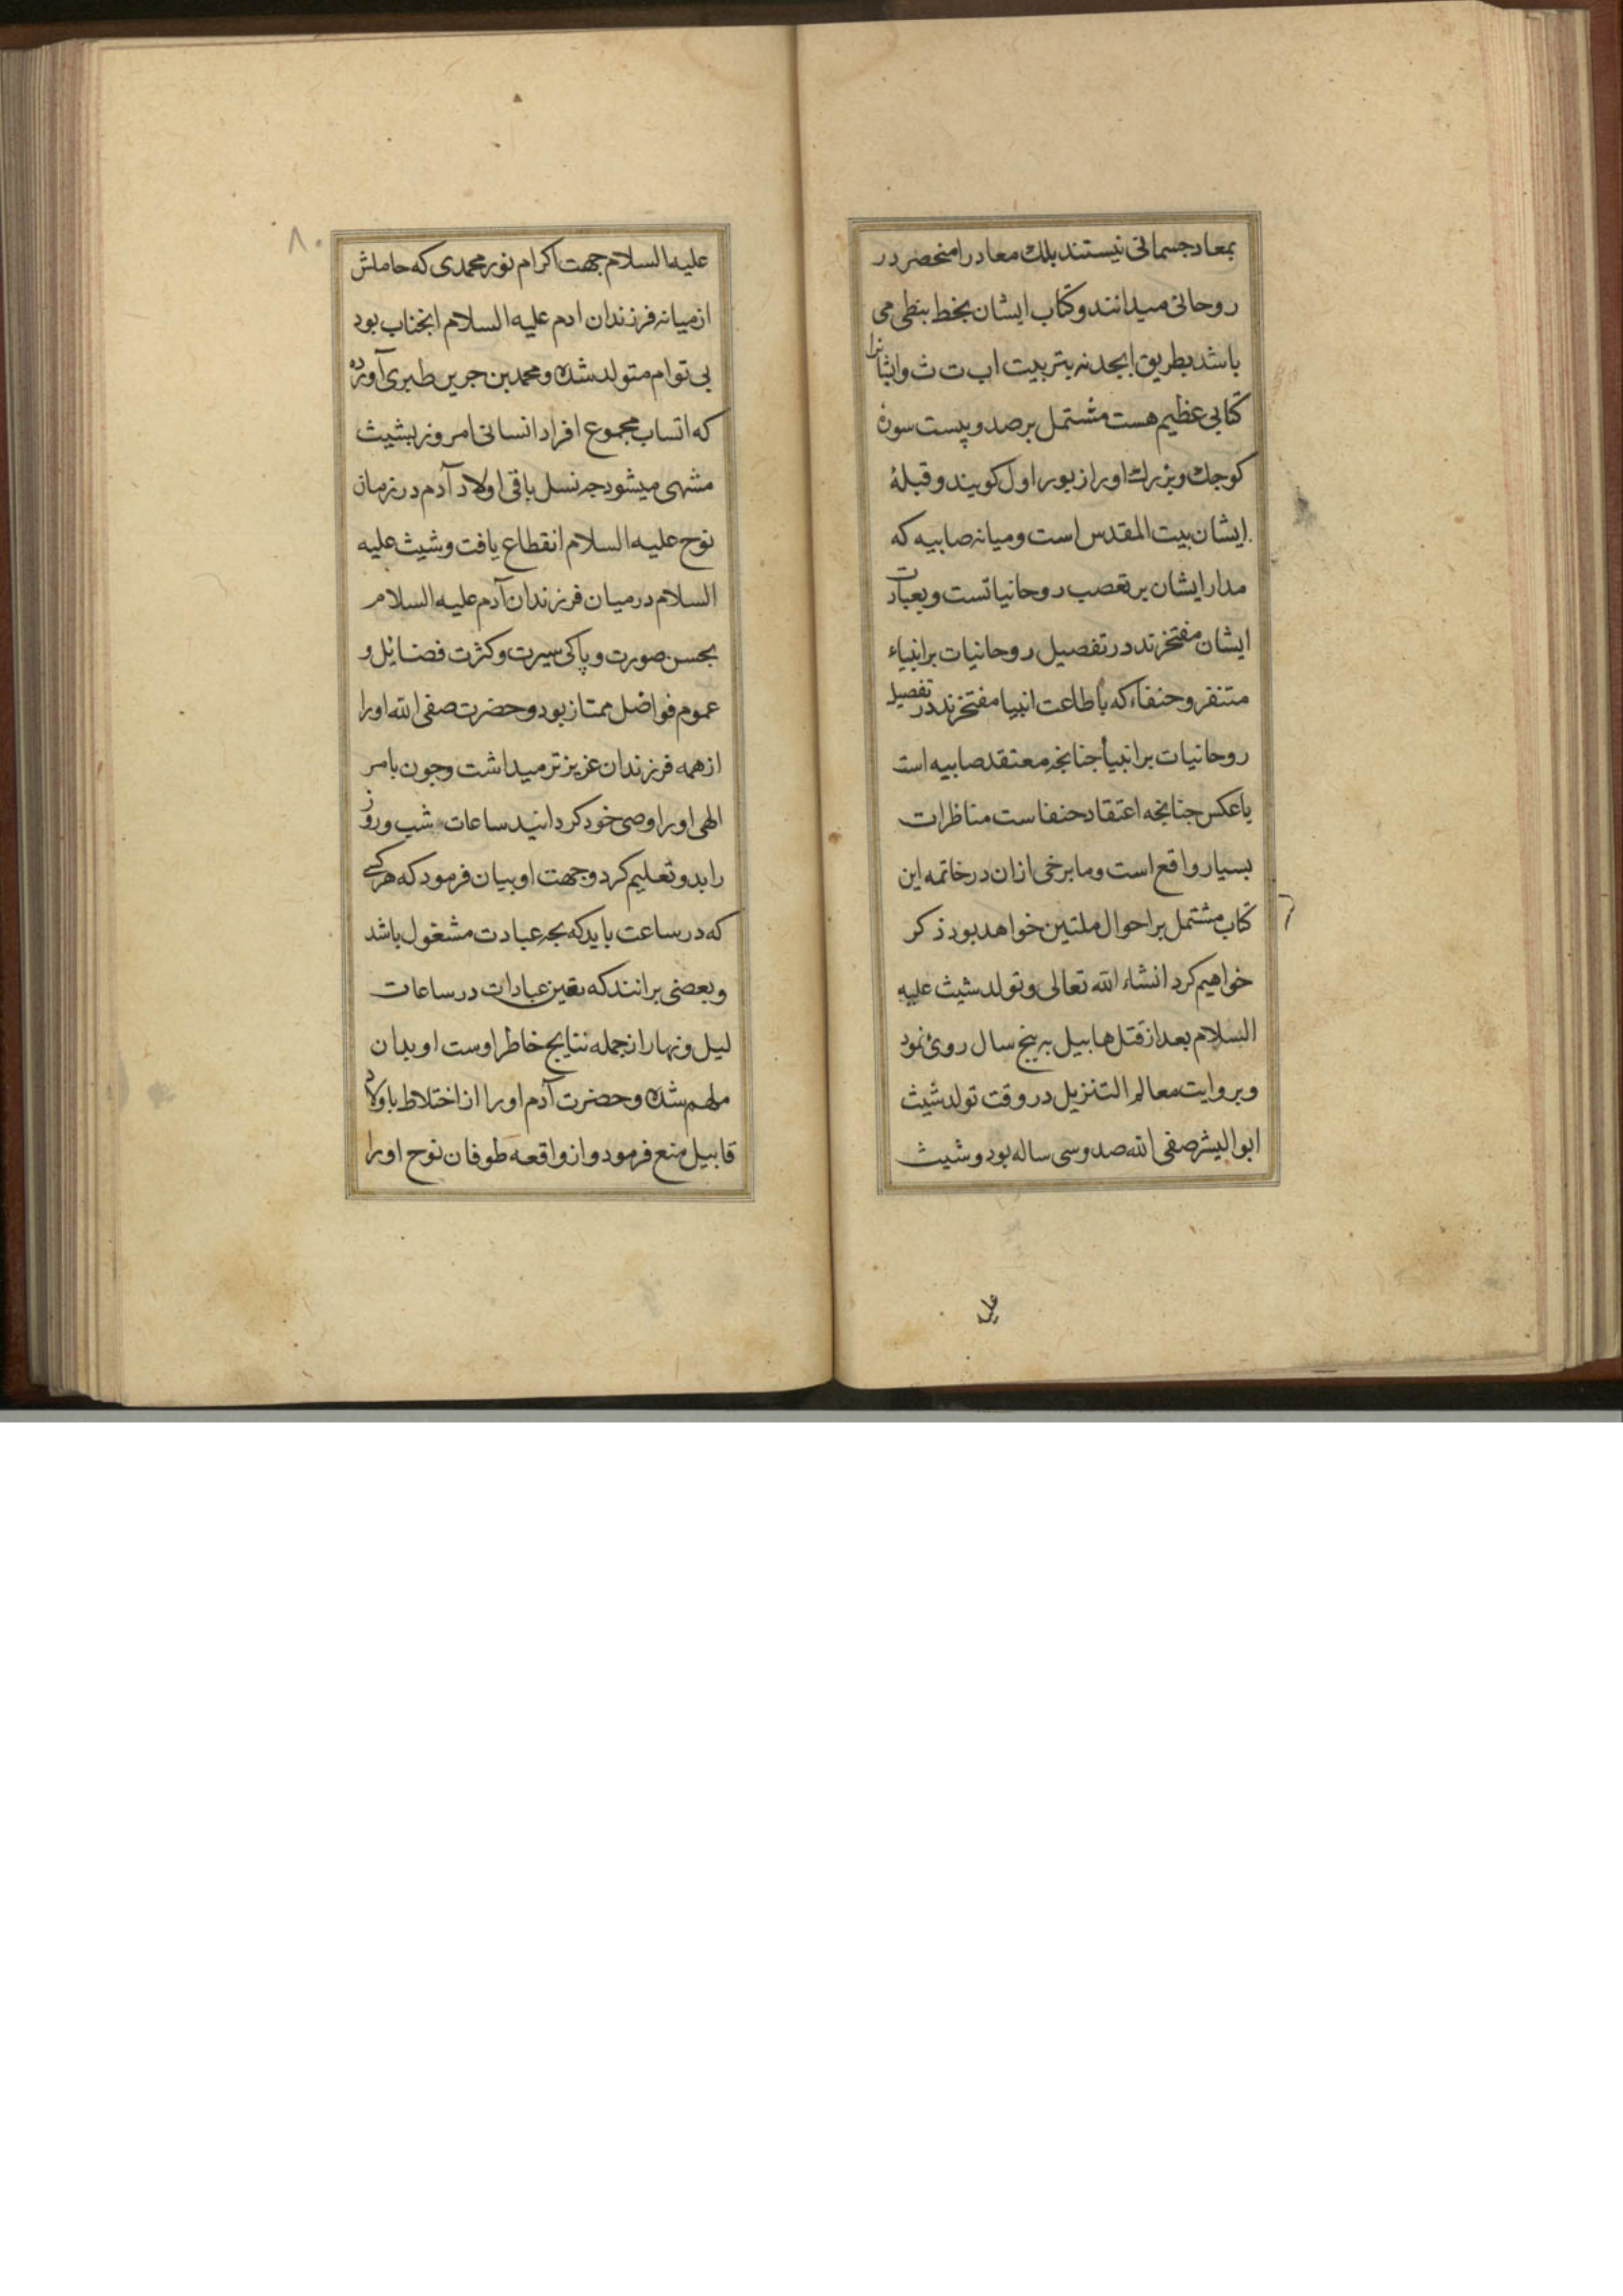 بمعاد جسمانی نیستند بلك معاد را منحصر در
روحانی میدانند و کتاب ایشان بخط بنطی می
باشد بطریق ابجد نه بتربیت اب ت ث و ایشا نرا
کتابی عظیم هست مشتمل بر صد و بیست سورۀ
کوجك و بزرك او را زبور اول کویند و قبلۀ
ایشان بیت المقدس است و میانه صابیه که
مدار ایشان بر تعصب روحانیاتست و بعبارت
ایشان مفتخرند در تفصیل روحانیات بر انبیاء
متنفر و حنفاء که باطاعت انبیا مفتخرند در تفصیل
روحانیات بر انبیأ جنانجه معتقد صابیه است
یاعکس جنانجه اعتقاد حنفاست مناظرات
بسیار واقع است و ما برخی ازان در خاتمه این
کتاب مشتمل بر احوال ملتین خواهد بود ذکر
خواهیم کرد انشاء الله تعالی و تولد شیث علیه
السلام بعد از قتل هابیل به پنج سال روی نمود
و بروایت معالم التنزیل در وقت تولد شیث
ابوالبشر صفی الله صد و سی ساله بود و شیث
علیه
۸۰
علیه السلام جهت اکرام نور محمدی که حاملش
از میانه فرزندان ادم علیه السلام انجناب بود
بی توام متولد شده و محمد بن جریر طبری آورده
که اتساب مجموع افراد انسانی امروز بشیث
منتهی میشود جه نسل باقی اولاد آدم در زمان
نوح علیه السلام انقطاع یافت و شیث علیه
السلام در میان فرزندان آدم علیه السلام
بحسن صورت و پاکی سیرت و کثرت فضایل و
عموم فواضل ممتاز بود و حضرت صفی الله او را
از همه فرزندان عزیز تر میداشت و جون بامر
الهی او را وصی خود کردانید ساعات شب و روز
را بدو تعلیم کرد و جهت او بیان فرمود که هر کسی
که در ساعت باید که بجه عبادت مشغول باشد
و بعضی برانند که تعین عبادات در ساعات
لیل و نهار از جمله نتایج خاطر اوست او بدان
ملهم شده و حضرت آدم او را از اختلاط باولاد
قابیل منع فرمود و از واقعه طوفان نوح او را